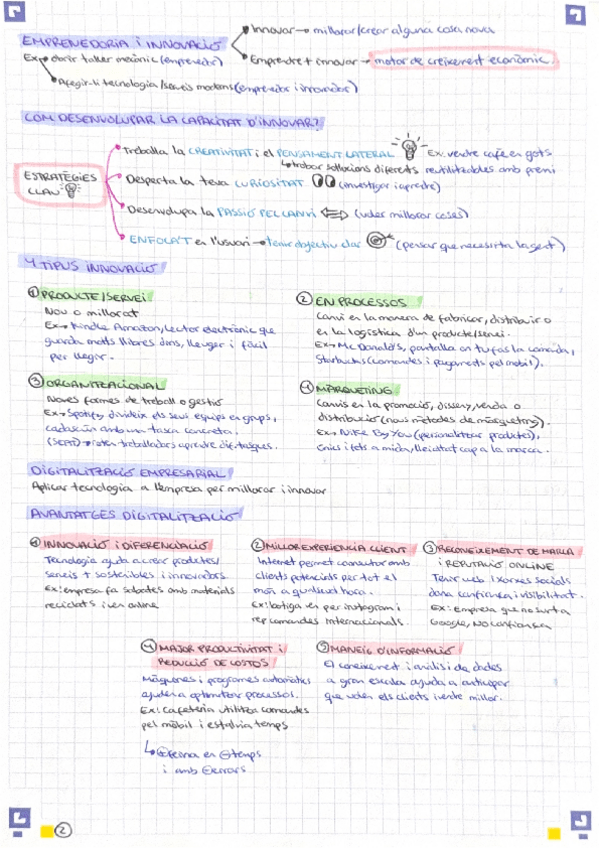 EMPRENEDORIA i INNOVACIÓ
Innovar → millorar/crear alguna cosa nova
Emprendre + innovar → motor de creixement econòmic.
Ex → obrir taller mecànic (emprenedor)
Afegir-li tecnologia/serveis moderns (emprenedor i innovador)
COM DESENVOLUPAR LA CAPACITAT D'INNOVAR?
ESTRATÈGIES
CLAU
Treballa la CREATIVITAT i el PENSAMENT LATERAL Ex: vendre cafè en gots
↳ trobar solucions diferents reutilitzables amb premi
Desperta la teva CURIOSITAT (investigar i aprendre)
Desenvolupa la PASSIÓ PEL CANVI (voler millorar coses)
ENFOCA'T en l'usuari → tenir objectiu clar (pensar que necessita la gent)
4 TIPUS INNOVACIÓ
① PRODUCTE/SERVEI
Nou o millorat
Ex → Kindle Amazon, lector electrònic que
guarda molts llibres dins, lleuger i fàcil
per llegir.
② EN PROCESSOS
Canvi en la manera de fabricar, distribuir o
en la logística d'un producte/servei.
Ex → McDonald's, pantalla on tu fas la comanda,
Starbucks (comandes i pagaments pel mòbil).
③ ORGANITZACIONAL
Noves formes de treball o gestió
Ex → Spotify, divideix els seus equips en grups,
cadascun amb una tasca concreta.
(SEAT) → roten treballadors aprendre dif. tasques.
④ MÀRQUETING
Canvis en la promoció, disseny, venda o
distribució (nous mètodes de màrqueting).
Ex → Nike By You (personalitzar productes),
únics i fets a mida, lleialtat cap a la marca.
DIGITALITZACIÓ EMPRESARIAL
Aplicar tecnologia a l'empresa per millorar i innovar
AVANTATGES DIGITALITZACIÓ
① INNOVACIÓ i DIFERENCIACIÓ
Tecnologia ajuda a crear productes/
serveis + sostenibles i innovadors.
Ex: empresa fa sabates amb materials
reciclats i ven online
② MILLOR EXPERIENCIA CLIENT
Internet permet connectar amb
clients potencials per tot el
món a qualsevol hora.
Ex: botiga en per instagram i
rep comandes internacionals.
③ RECONEIXEMENT DE MARCA
i REPUTACIÓ ONLINE
Tenir web i xarxes socials
dona confiança i visibilitat.
Ex: empresa que no surt a
Google, NO confiança
④ MAJOR PRODUCTIVITAT i
REDUCCIÓ DE COSTOS
Màquines i programes automàtics
ajuden a optimitzar processos.
Ex: cafeteria utilitza comandes
pel mòbil i estalvia temps
↳ ⊕ feina en ⊖ temps
i amb ⊖ errors
⑤ MANEIG D'INFORMACIÓ
El coneixement i anàlisi de dades
a gran escala ajuda a anticipar
que volen els clients i vendre millor.
2